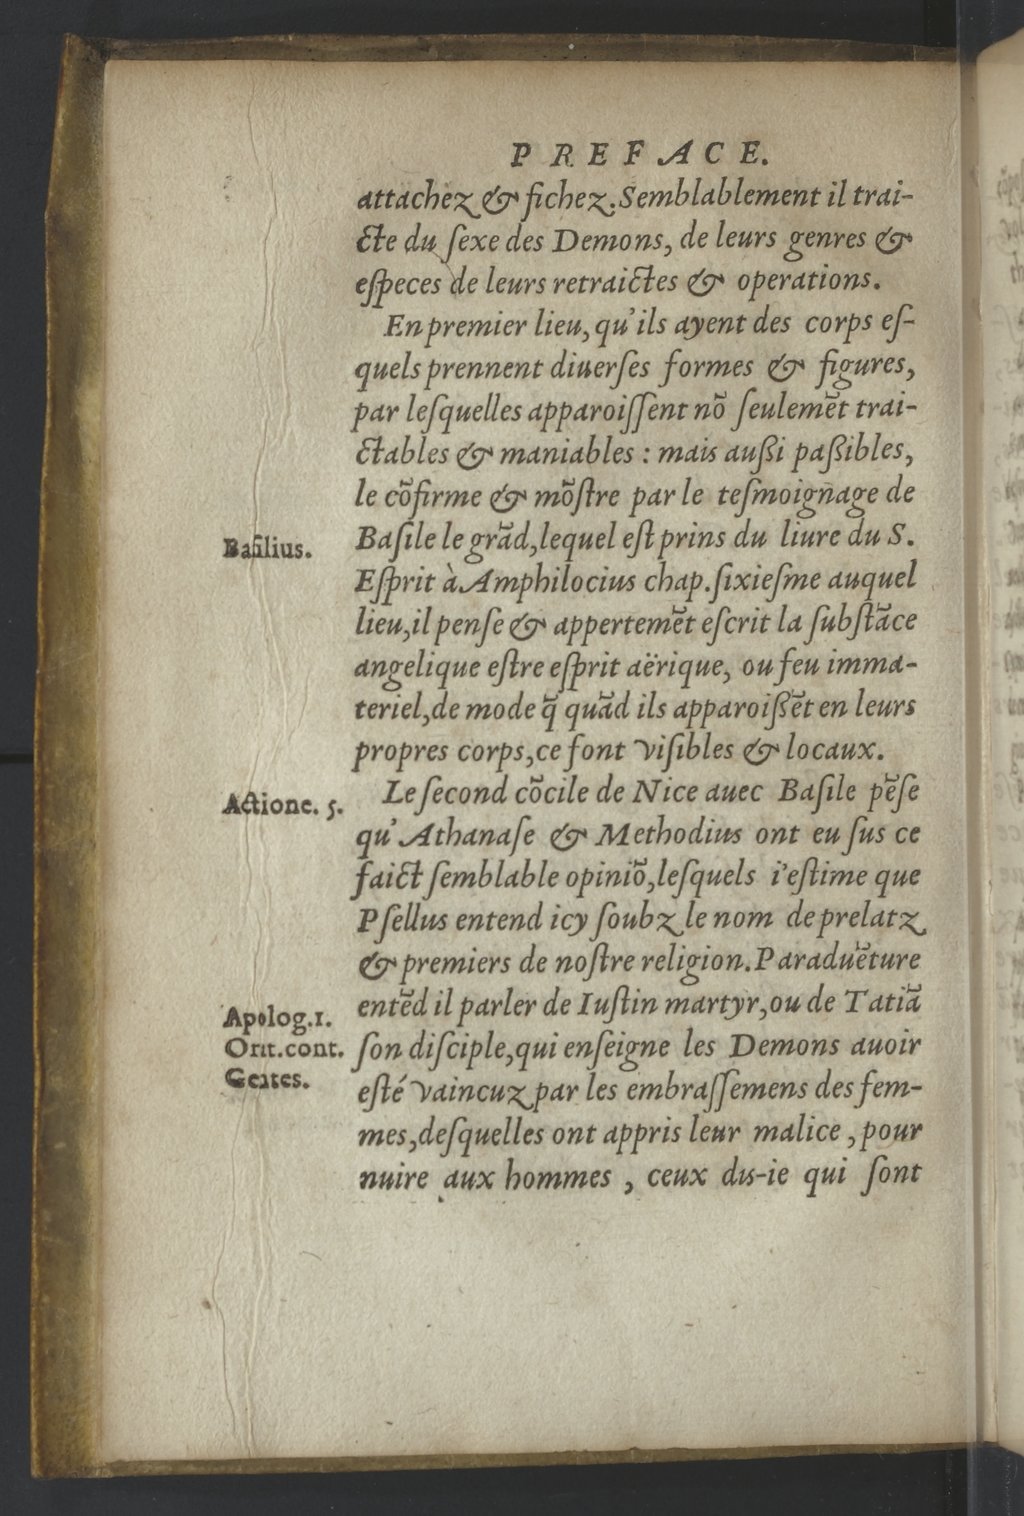 PREFACE.
attachez & fichez. Semblablement il trai-
cte du ſexe des Demons, de leurs genres &
eſpeces de leurs retraictes & operations.
En premier lieu, qu'ils ayent des corps eſ-
quels prennent diuerſes formes & figures,
par leſquelles apparoiſſent nō ſeulemēt trai-
ctables & maniables : mais auſſi paſſibles,
le cōfirme & mōſtre par le teſmoignage de
Baſilius.
Baſile le grād, lequel eſt prins du liure du S.
Eſprit à Amphilocius chap. ſixieſme auquel
lieu, il penſe & appertemēt eſcrit la ſubſtāce
angelique eſtre eſprit aërique, ou feu imma-
teriel, de mode q̃ quād ils apparoiſſēt en leurs
propres corps, ce font viſibles & locaux.
Actione. 5.
Le ſecond cōcile de Nice auec Baſile pēſe
qu'Athanaſe & Methodius ont eu ſus ce
faict ſemblable opiniō, leſquels i'eſtime que
Pſellus entend icy ſoubz le nom de prelatz
& premiers de noſtre religion. Paraduēture
Apolog. 1.
entēd il parler de Iuſtin martyr, ou de Tatiā
Orat. cont.
ſon diſciple, qui enſeigne les Demons auoir
Gentes.
eſté vaincuz par les embraſſemens des fem-
mes, deſquelles ont appris leur malice, pour
nuire aux hommes, ceux dis-ie qui ſont